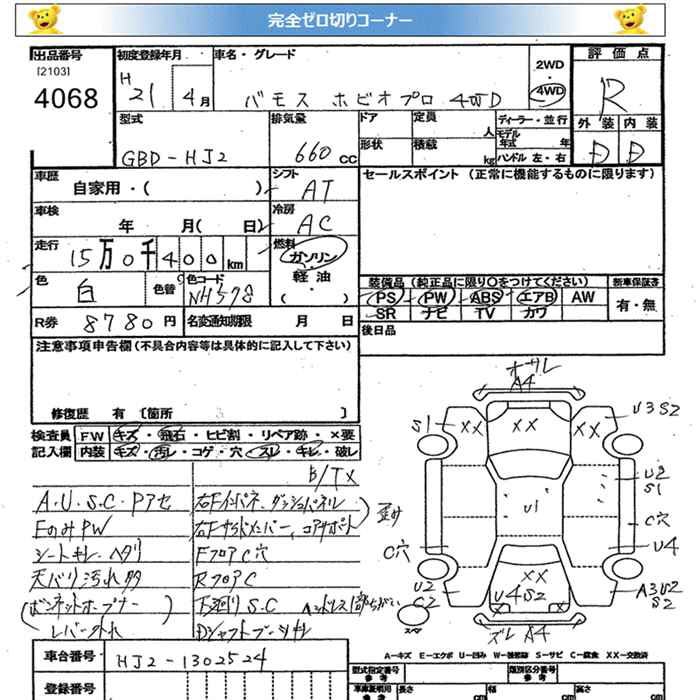 完全ゼロ切りコーナー
出品番号
[2103]
4068
初度登録年月
H
21 4月
車名・グレード
バモス ホビオプロ 4WD
2WD
・
4WD
評価点
R
外装 内装
D D
型式
GBD-HJ2
排気量
660 cc
ドア 定員 人
形状 積載 kg
ディーラー・並行
モデル年式 年
ハンドル 左・右
車歴
自家用・( )
シフト
AT
セールスポイント (正常に機能するものに限ります)
車検
年 月( 日)
冷房
AC
走行
15万0千400km
燃料
ガソリン
・
軽油
・
( )
色
白
色替
色コード
NH578
装備品 (純正品に限り〇をつけてください)
PS PW ABS エアB AW
SR ナビ TV カワ
新車保証書
有・無
R券 8780円
名変通知期限 月 日
後日品
注意事項申告欄 (不具合内容等は具体的に記入して下さい)
修復歴 有 〔箇所 〕
検査員記入欄
FW キズ・飛石・ヒビ割・リペア跡・×要
内装 キズ・汚レ・コゲ・穴・スレ・キレ・破レ
B/Tx
A.U.S.C.Pアセ
右Fインパネ、ダッシュパネル
FのみPW
右Fサイドメンバー、コアサポート
歪み
シートキレ・ヘタリ
FフロアC穴
天バリ汚れ多
RフロアC
(ボンネットオープナー
下廻りS.C
レバー外れ)
Dシャフトブーツキレ
オサレ
A4
S1
XX
XX
XX
U3S2
U2
S1
U1
C穴
C穴
U4
U2
C2
XX
U4S2
A3U2
S2
スペア
ズレ A4
A-キズ E-エクボ U-凹み W-補修跡 S-サビ C-腐食 XX-交換済
車台番号
HJ2-1302524
登録番号
型式指定番号
参考
類別区分番号
参考
車庫証明用
参考
長さ cm
幅 cm
高さ cm